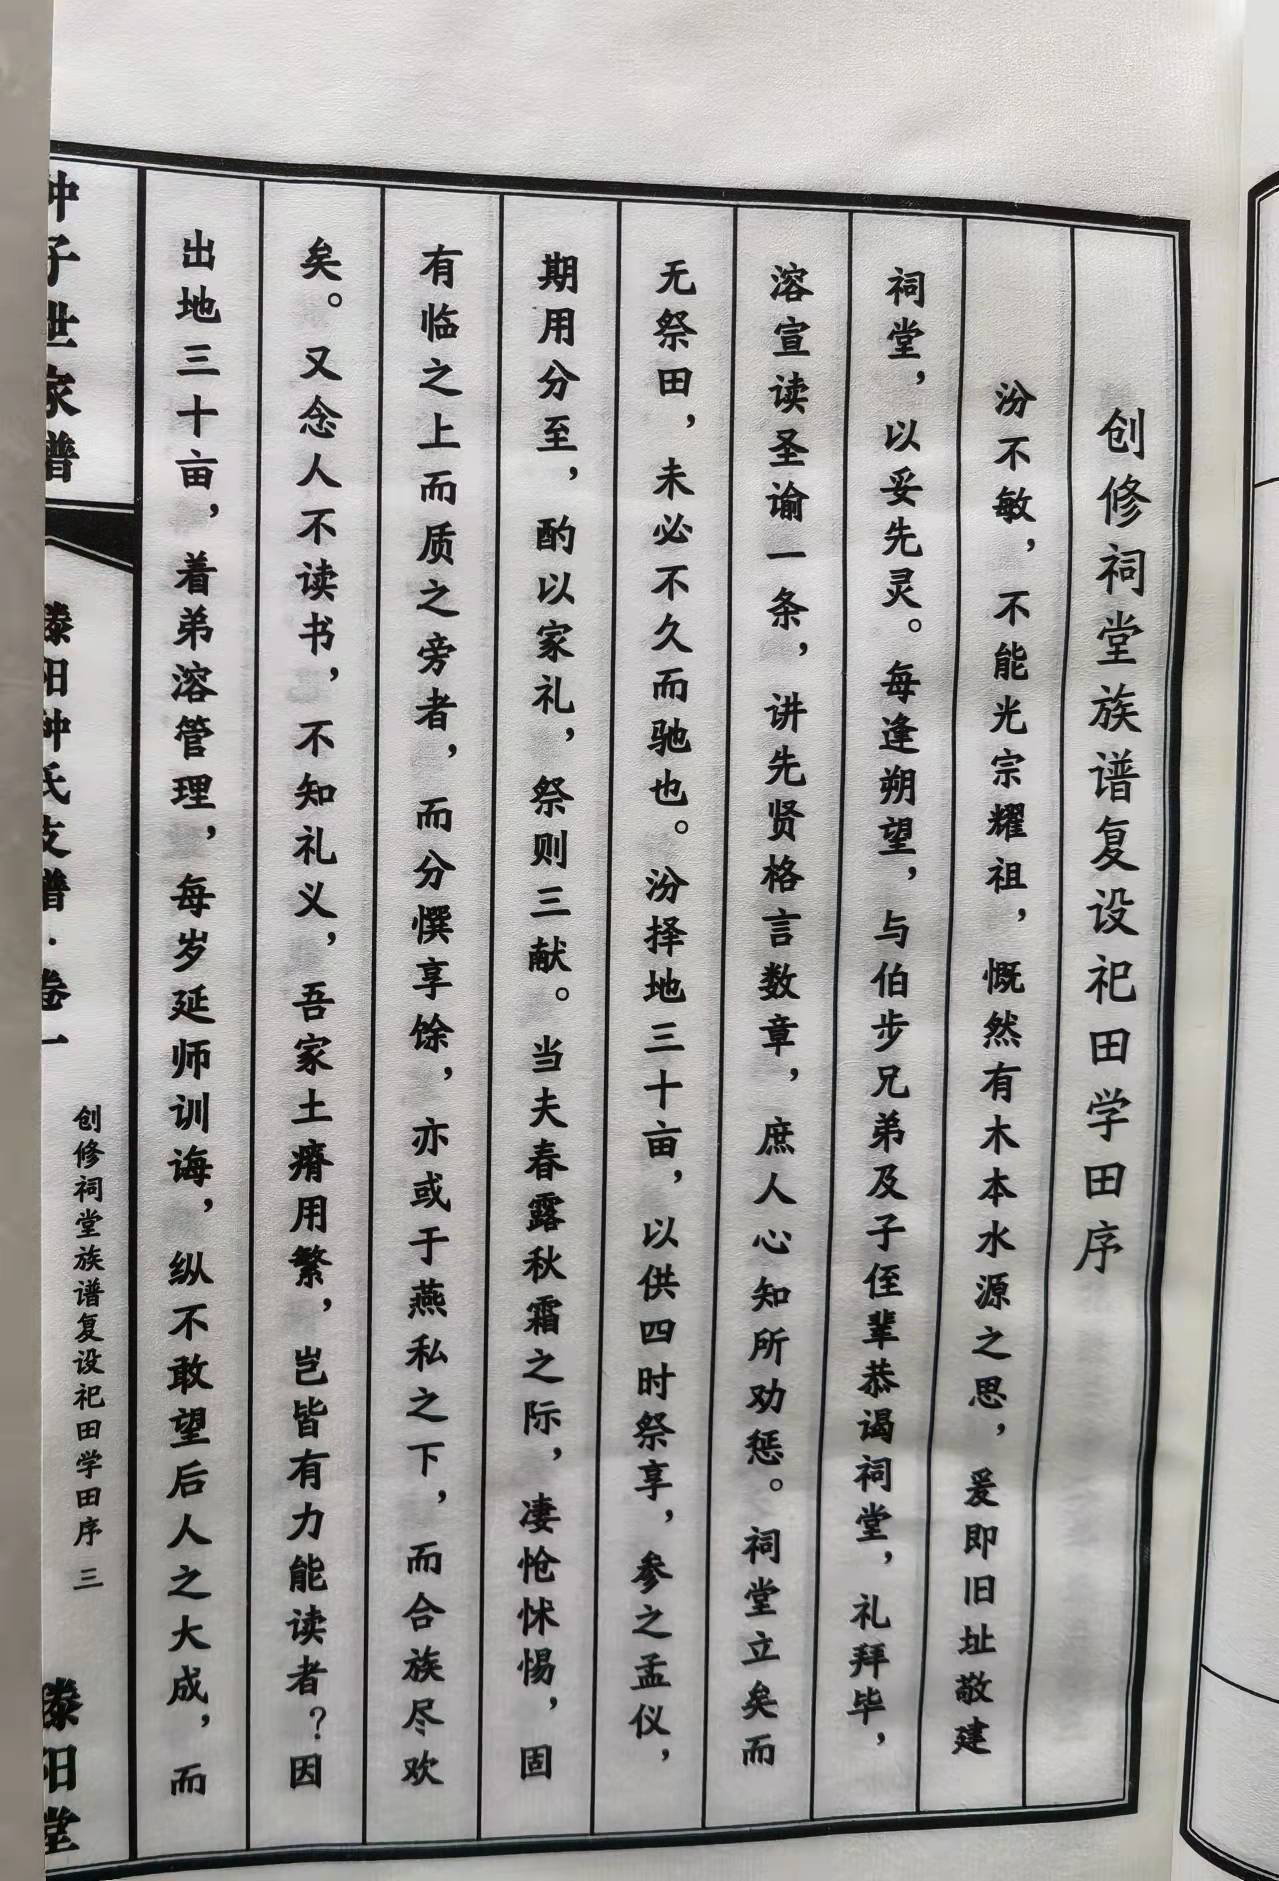 创修祠堂族谱复设祀田学田序
汾不敏，不能光宗耀祖，慨然有木本水源之思，爰即旧址敬建
祠堂，以妥先灵。每逢朔望，与伯步兄弟及子侄辈恭谒祠堂，礼拜毕，
溶宣读圣谕一条，讲先贤格言数章，庶人心知所劝惩。祠堂立矣而
无祭田，未必不久而驰也。汾择地三十亩，以供四时祭享，参之孟仪，
期用分至，酌以家礼，祭则三献。当夫春露秋霜之际，凄怆怵惕，固
有临之上而质之旁者，而分馔享馀，亦或于燕私之下，而合族尽欢
矣。又念人不读书，不知礼义，吾家土瘠用繁，岂皆有力能读者？因
出地三十亩，着弟溶管理，每岁延师训诲，纵不敢望后人之大成，而
种子世家谱
滕阳种氏支谱·卷一
创修祠堂族谱复设祀田学田序 三
滕阳堂